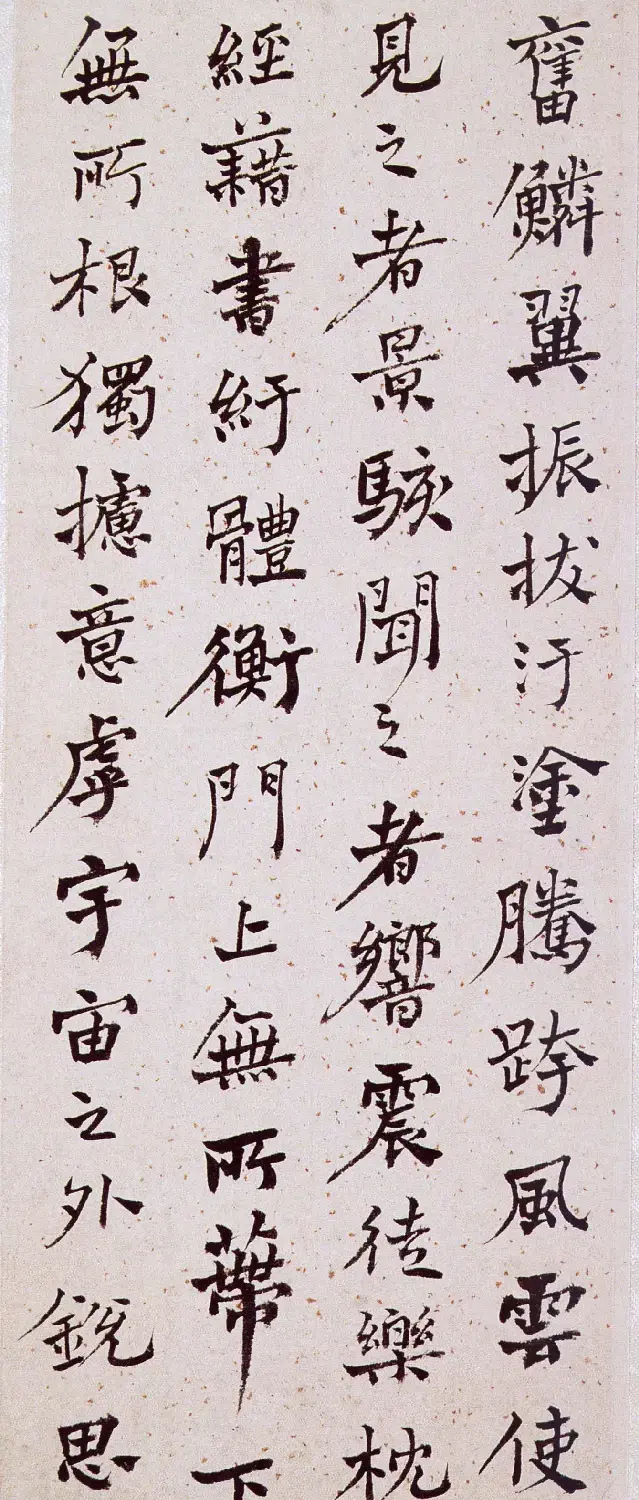 奮鱗翼振拔汙塗騰跨風雲使
見之者景駭聞之者響震徒樂枕
經藉書紆體衡門上無所蔕下
無所根獨攄意虖宇宙之外銳思